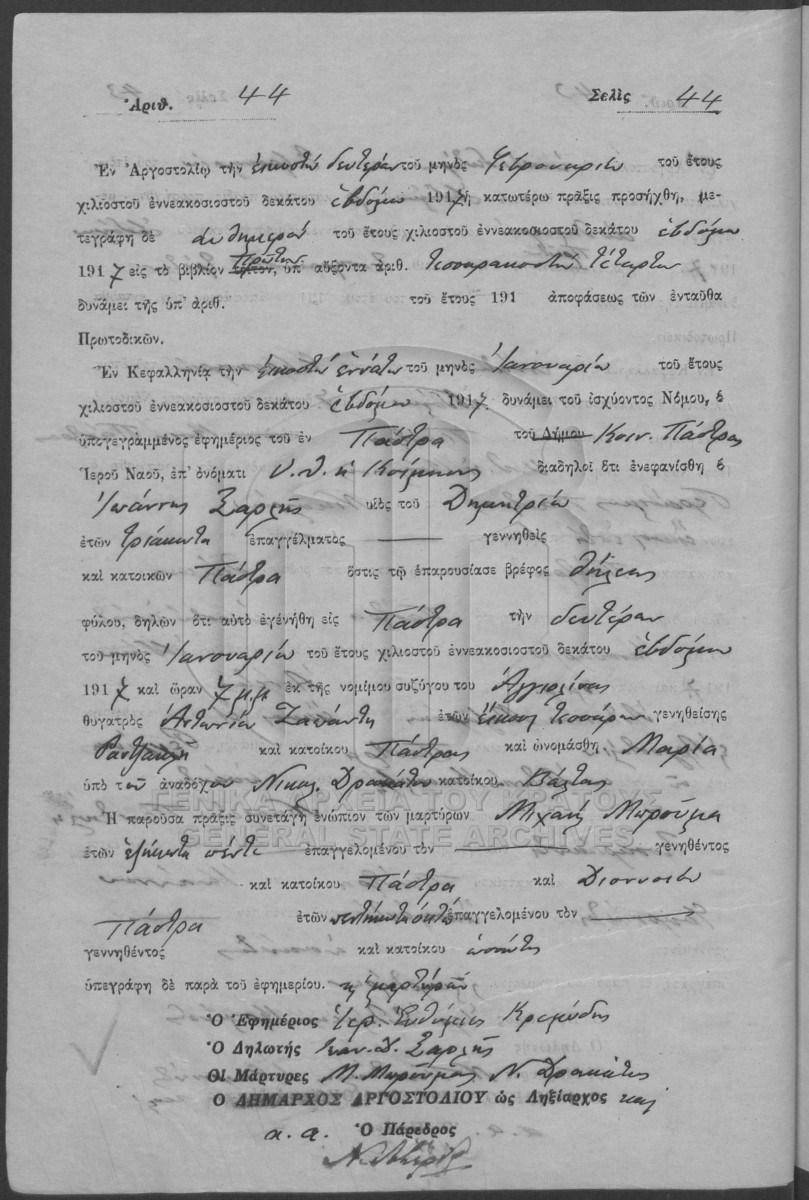 Ἀριθ. 44 Σελὶς 44
Ἐν Ἀργοστολίῳ τὴν εἰκοστὴν δευτέραν τοῦ μηνὸς Φεβρουαρίου τοῦ ἔτους
χιλιοστοῦ ἐννεακοσιοστοῦ δεκάτου ἑβδόμου 1917 ἡ κατωτέρω πρᾶξις προσήχθη, με-
τεγράφη δὲ αὐθημερὸν τοῦ ἔτους χιλιοστοῦ ἐννεακοσιοστοῦ δεκάτου ἑβδόμου
1917 εἰς τὸ βιβλίον πρῶτον, ὑπ' αὔξοντα ἀριθ. τεσσαρακοστὸν τέταρτον
δυνάμει τῆς ὑπ' ἀριθ. τοῦ ἔτους 191 ἀποφάσεως τῶν ἐνταῦθα
Πρωτοδικῶν.
Ἐν Κεφαλληνίᾳ τὴν εἰκοστὴν ἐννάτην τοῦ μηνὸς Ἰανουαρίου τοῦ ἔτους
χιλιοστοῦ ἐννεακοσιοστοῦ δεκάτου ἑβδόμου 1917 δυνάμει τοῦ ἰσχύοντος Νόμου, ὁ
ὑπογεγραμμένος ἐφημέριος τοῦ ἐν Πάστρα τοῦ Δήμου Κοιν. Πάστρας
Ἱεροῦ Ναοῦ, ἐπ' ὀνόματι Κοίμησις διαδηλοῖ ὅτι ἐνεφανίσθη ὁ
Ἰωάννης Ζαρλῆς υἱὸς τοῦ Δημητρίου
ἐτῶν τριάκοντα ἐπαγγέλματος γεννηθεὶς
καὶ κατοικῶν Πάστρα ὅστις τῷ ἐπαρουσίασε βρέφος θήλεος
φύλου, δηλῶν ὅτι αὐτὸ ἐγενήθη εἰς Πάστρα τὴν δευτέραν
τοῦ μηνὸς Ἰανουαρίου τοῦ ἔτους χιλιοστοῦ ἐννεακοσιοστοῦ δεκάτου ἑβδόμου
1917 καὶ ὥραν 7 μ.μ. ἐκ τῆς νομίμου συζύγου του Ἀγγελίνας
θυγατρὸς Ἀντωνίου Ζαπάντη ἐτῶν εἴκοσι τεσσάρων γενηθείσης
καὶ κατοίκου Πάστρας καὶ ὠνομάσθη, Μαρία
ὑπὸ τοῦ ἀναδόχου Νικολ. Δρακάτου κατοίκου Βάλτας
ΓΕΝΙΚΑ ΑΡΧΕΙΑ ΤΟΥ ΚΡΑΤΟΥΣ
Ἡ παροῦσα πρᾶξις συνετάγη ἐνώπιον τῶν μαρτύρων Μιχαὴλ Μπρούμα
GENERAL STATE ARCHIVES
ἐτῶν ἑξήκοντα πέντε ἐπαγγελομένου τὸν γενηθέντος
καὶ κατοίκου Πάστρα καὶ Διονυσίου
Πάστρα ἐτῶν πεντήκοντα ὀκτὼ ἐπαγγελομένου τὸν
γεννηθέντος καὶ κατοίκου ὡσαύτως
ὑπεγράφη δὲ παρὰ τοῦ ἐφημερίου.
Ὁ Ἐφημέριος Ἱερ. Εὐθύμιος Κρεμύδης
Ὁ Δηλωτὴς Ἰωαν. Δ. Ζαρλῆς
Οἱ Μάρτυρες Μ. Μπρούμας Ν. Δρακάτος
Ὁ ΔΗΜΑΡΧΟΣ ΑΡΓΟΣΤΟΛΙΟΥ ὡς Ληξίαρχος
α. α. Ὁ Πάρεδρος